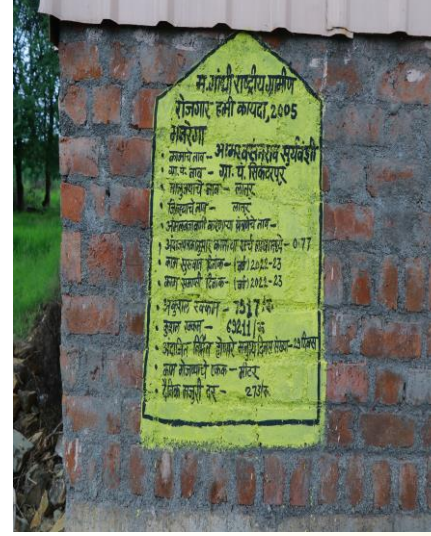 म. गांधी राष्ट्रीय ग्रामीण
रोजगार हमी कायदा, 2005
मनरेगा
• कामाचे नाव - अमर वसंतराव सुर्यवंशी
• ग्रा. पं. नाव - ग्रा. पं. सिकंदरपूर
• तालुक्याचे नाव - लातूर
• जिल्ह्याचे नाव - लातूर
• अंमलबजावणी करणाऱ्या यंत्रणेचे नाव -
• अंदाजपत्रकानुसार कामाचा खर्च - 0.77
• काम सुरुवात दिनांक - 2022-23
• काम समाप्ती दिनांक - 2022-23
• अकुशल रक्कम - 7917/रु
• कुशल रक्कम - 69211/रु
• अंदाजित निर्मित होणारे मनुष्य दिवस संख्या - 29 दिवस
• काम मोजण्याचे एकक - मीटर
• दैनिक मजुरी दर - 273/रु